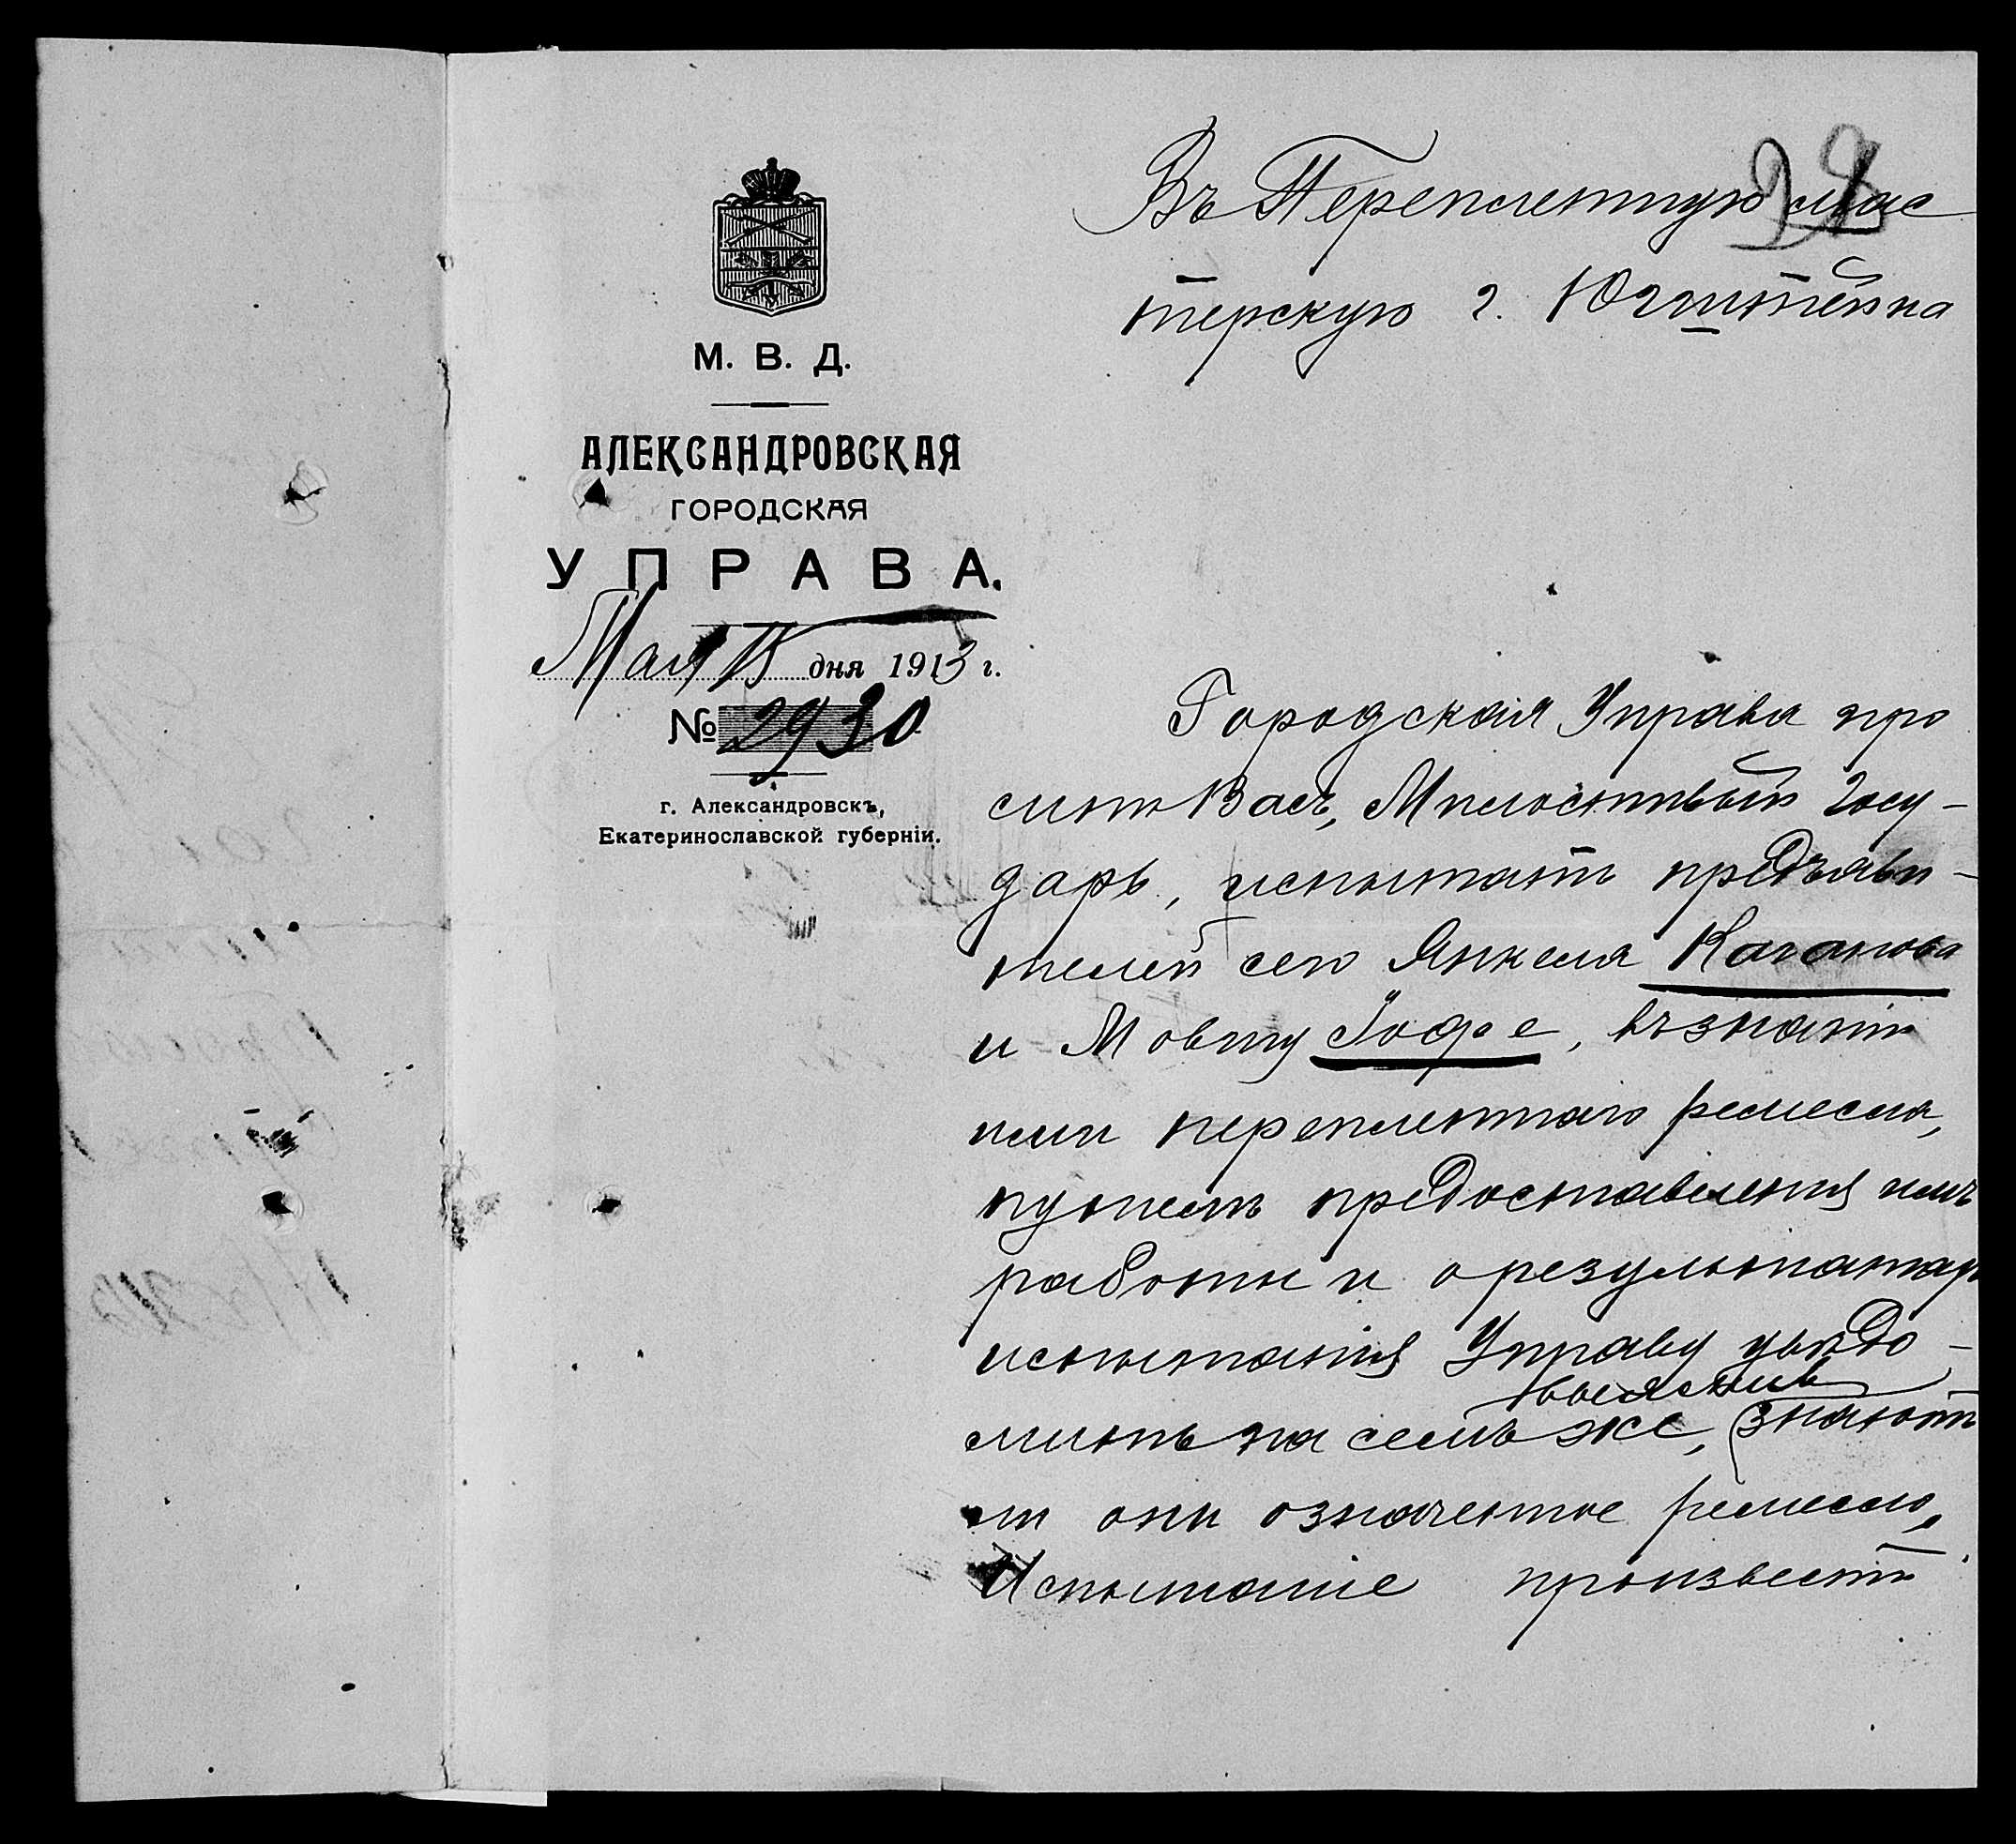 М. В. Д.
АЛЕКСАНДРОВСКАЯ
ГОРОДСКАЯ
УПРАВА.
Мая 15 дня 1913 г.
№ 2930
г. Александровскъ,
Екатеринославской губерніи.
Въ Переплетную мас
терскую г. Югштейна
Городская Управа про
ситъ Васъ, Милостивый Госу-
дарь, испытать предъяви-
телей сего Янкеля Каганова
и Мовшу Іоффе, въ знаніи
ими переплетнаго ремесла,
путемъ предоставленія имъ
работы и о результатахъ
испытанія Управу увѣдо-
мить на семъ же, выяснивъ знаютъ
ли они означенное ремесло.
Испытаніе произвести